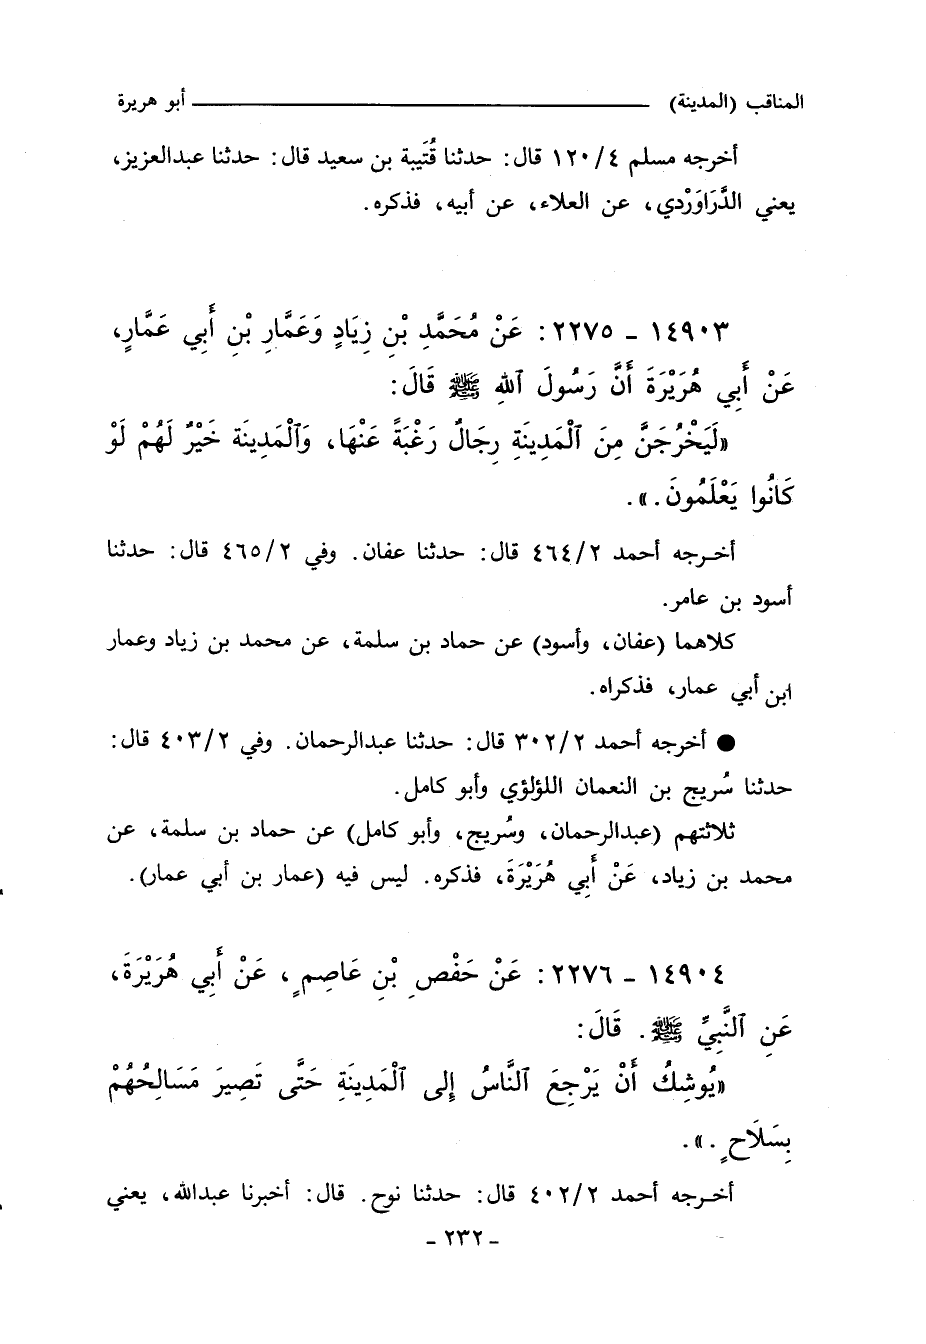 المناقب (المدينة) ــــــــــ أبو هريرة
أخرجه مسلم ١٢٠/٤ قال: حدثنا قُتَيبة بن سعيد قال: حدثنا عبدالعزيز،
يعني الدَّرَاوَرْدي، عن العلاء، عن أبيه، فذكره.
١٤٩٠٣ ـ ٢٢٧٥: عَنْ مُحَمَّدِ بْنِ زِيَادٍ وَعَمَّارِ بْنِ أَبِي عَمَّارٍ،
عَنْ أَبِي هُرَيْرَةَ أَنَّ رَسُولَ ٱللهِ ﷺ قَالَ:
«لَيَخْرُجَنَّ مِنَ ٱلْمَدِينَةِ رِجَالٌ رَغْبَةً عَنْهَا، وَٱلْمَدِينَة خَيْرٌ لَهُمْ لَوْ
كَانُوا يَعْلَمُونَ.».
أخـرجه أحمد ٤٦٤/٢ قال: حدثنا عفان. وفي ٤٦٥/٢ قال: حدثنا
أسود بن عامر.
كلاهما (عفان، وأسود) عن حماد بن سلمة، عن محمد بن زياد وعمار
ابن أبي عمار، فذكراه.
● أخرجه أحمد ٣٠٢/٢ قال: حدثنا عبدالرحمان. وفي ٤٠٣/٢ قال:
حدثنا سُريج بن النعمان اللؤلؤي وأبو كامل.
ثلاثتهم (عبدالرحمان، وسُريج، وأبو كامل) عن حماد بن سلمة، عن
محمد بن زياد، عَنْ أَبِي هُرَيْرَةَ، فذكره. ليس فيه (عمار بن أبي عمار).
١٤٩٠٤ ـ ٢٢٧٦: عَنْ حَفْصِ بْنِ عَاصِمٍ، عَنْ أَبِي هُرَيْرَةَ،
عَنِ ٱلنَّبِيِّ ﷺ. قَالَ:
«يُوشِكُ أَنْ يَرْجِعَ ٱلنَّاسُ إِلى ٱلْمَدِينَةِ حَتَّى تَصِيرَ مَسَالِحُهُمْ
بِسَلَاحٍ.».
أخـرجه أحمد ٤٠٢/٢ قال: حدثنا نوح. قال: أخبرنا عبدالله، يعني
ـ ٢٣٢ ـ